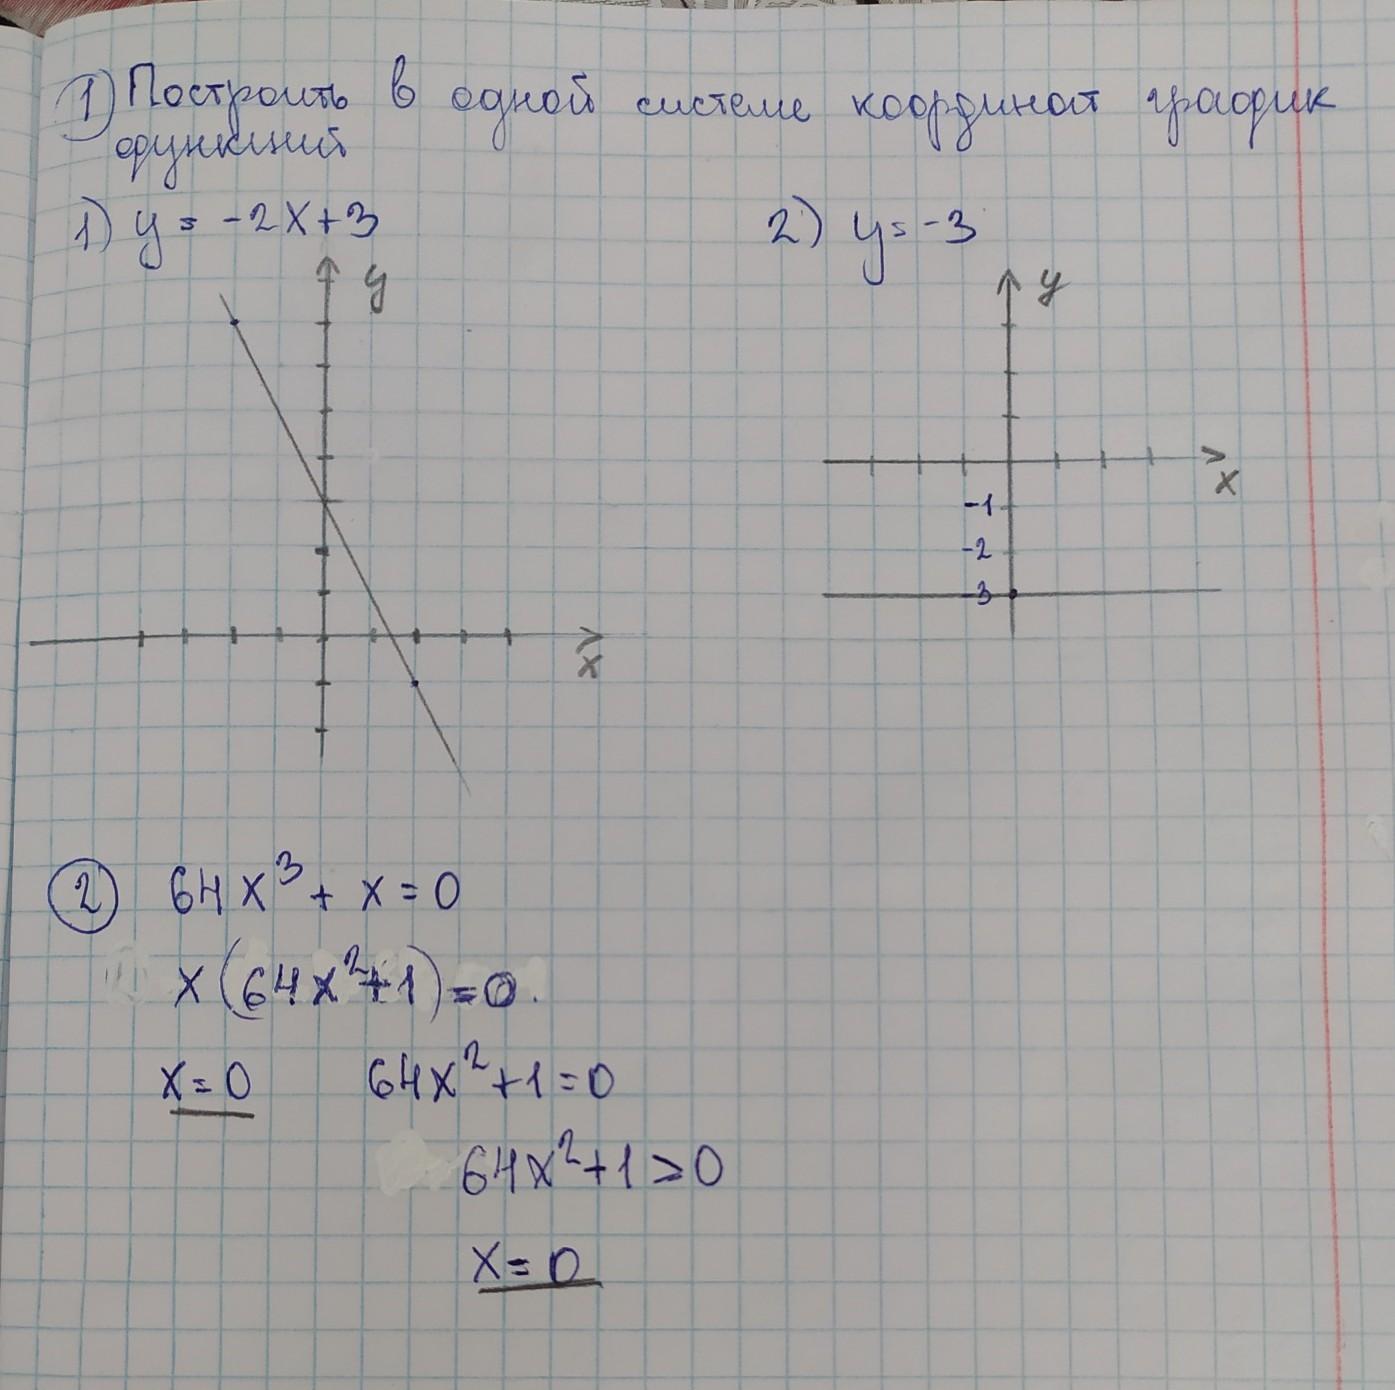 1) Построить в одной системе координат график
функций
1) y = -2x+3
2) y = -3
y
x
y
x
-1
-2
-3
2 64x³ + x = 0
x(64x²+1) = 0.
x = 0 64x²+1 = 0
64x²+1 > 0
x = 0